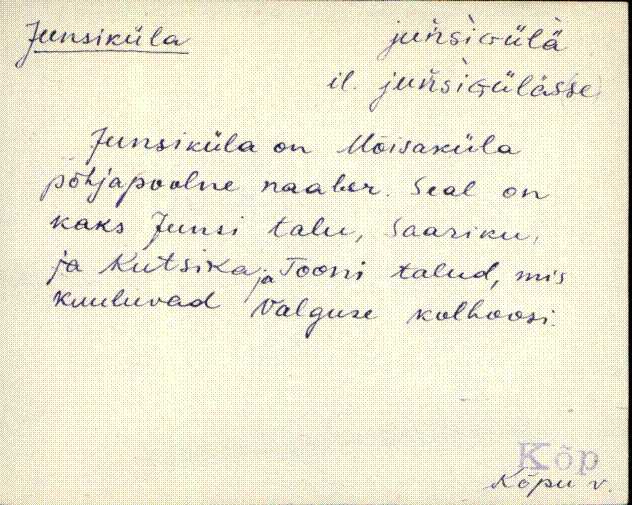 Junsiküla juǹsìɢülä
il. juǹsìɢülässe
Junsiküla on Mõisaküla
põhjapoolne naaber. Seal on
kaks Junsi talu, Saariku,
ja Kutsika ja Tooni talud, mis
kuuluvad Valguse kolhoosi.
Kõp
Kõpu v.